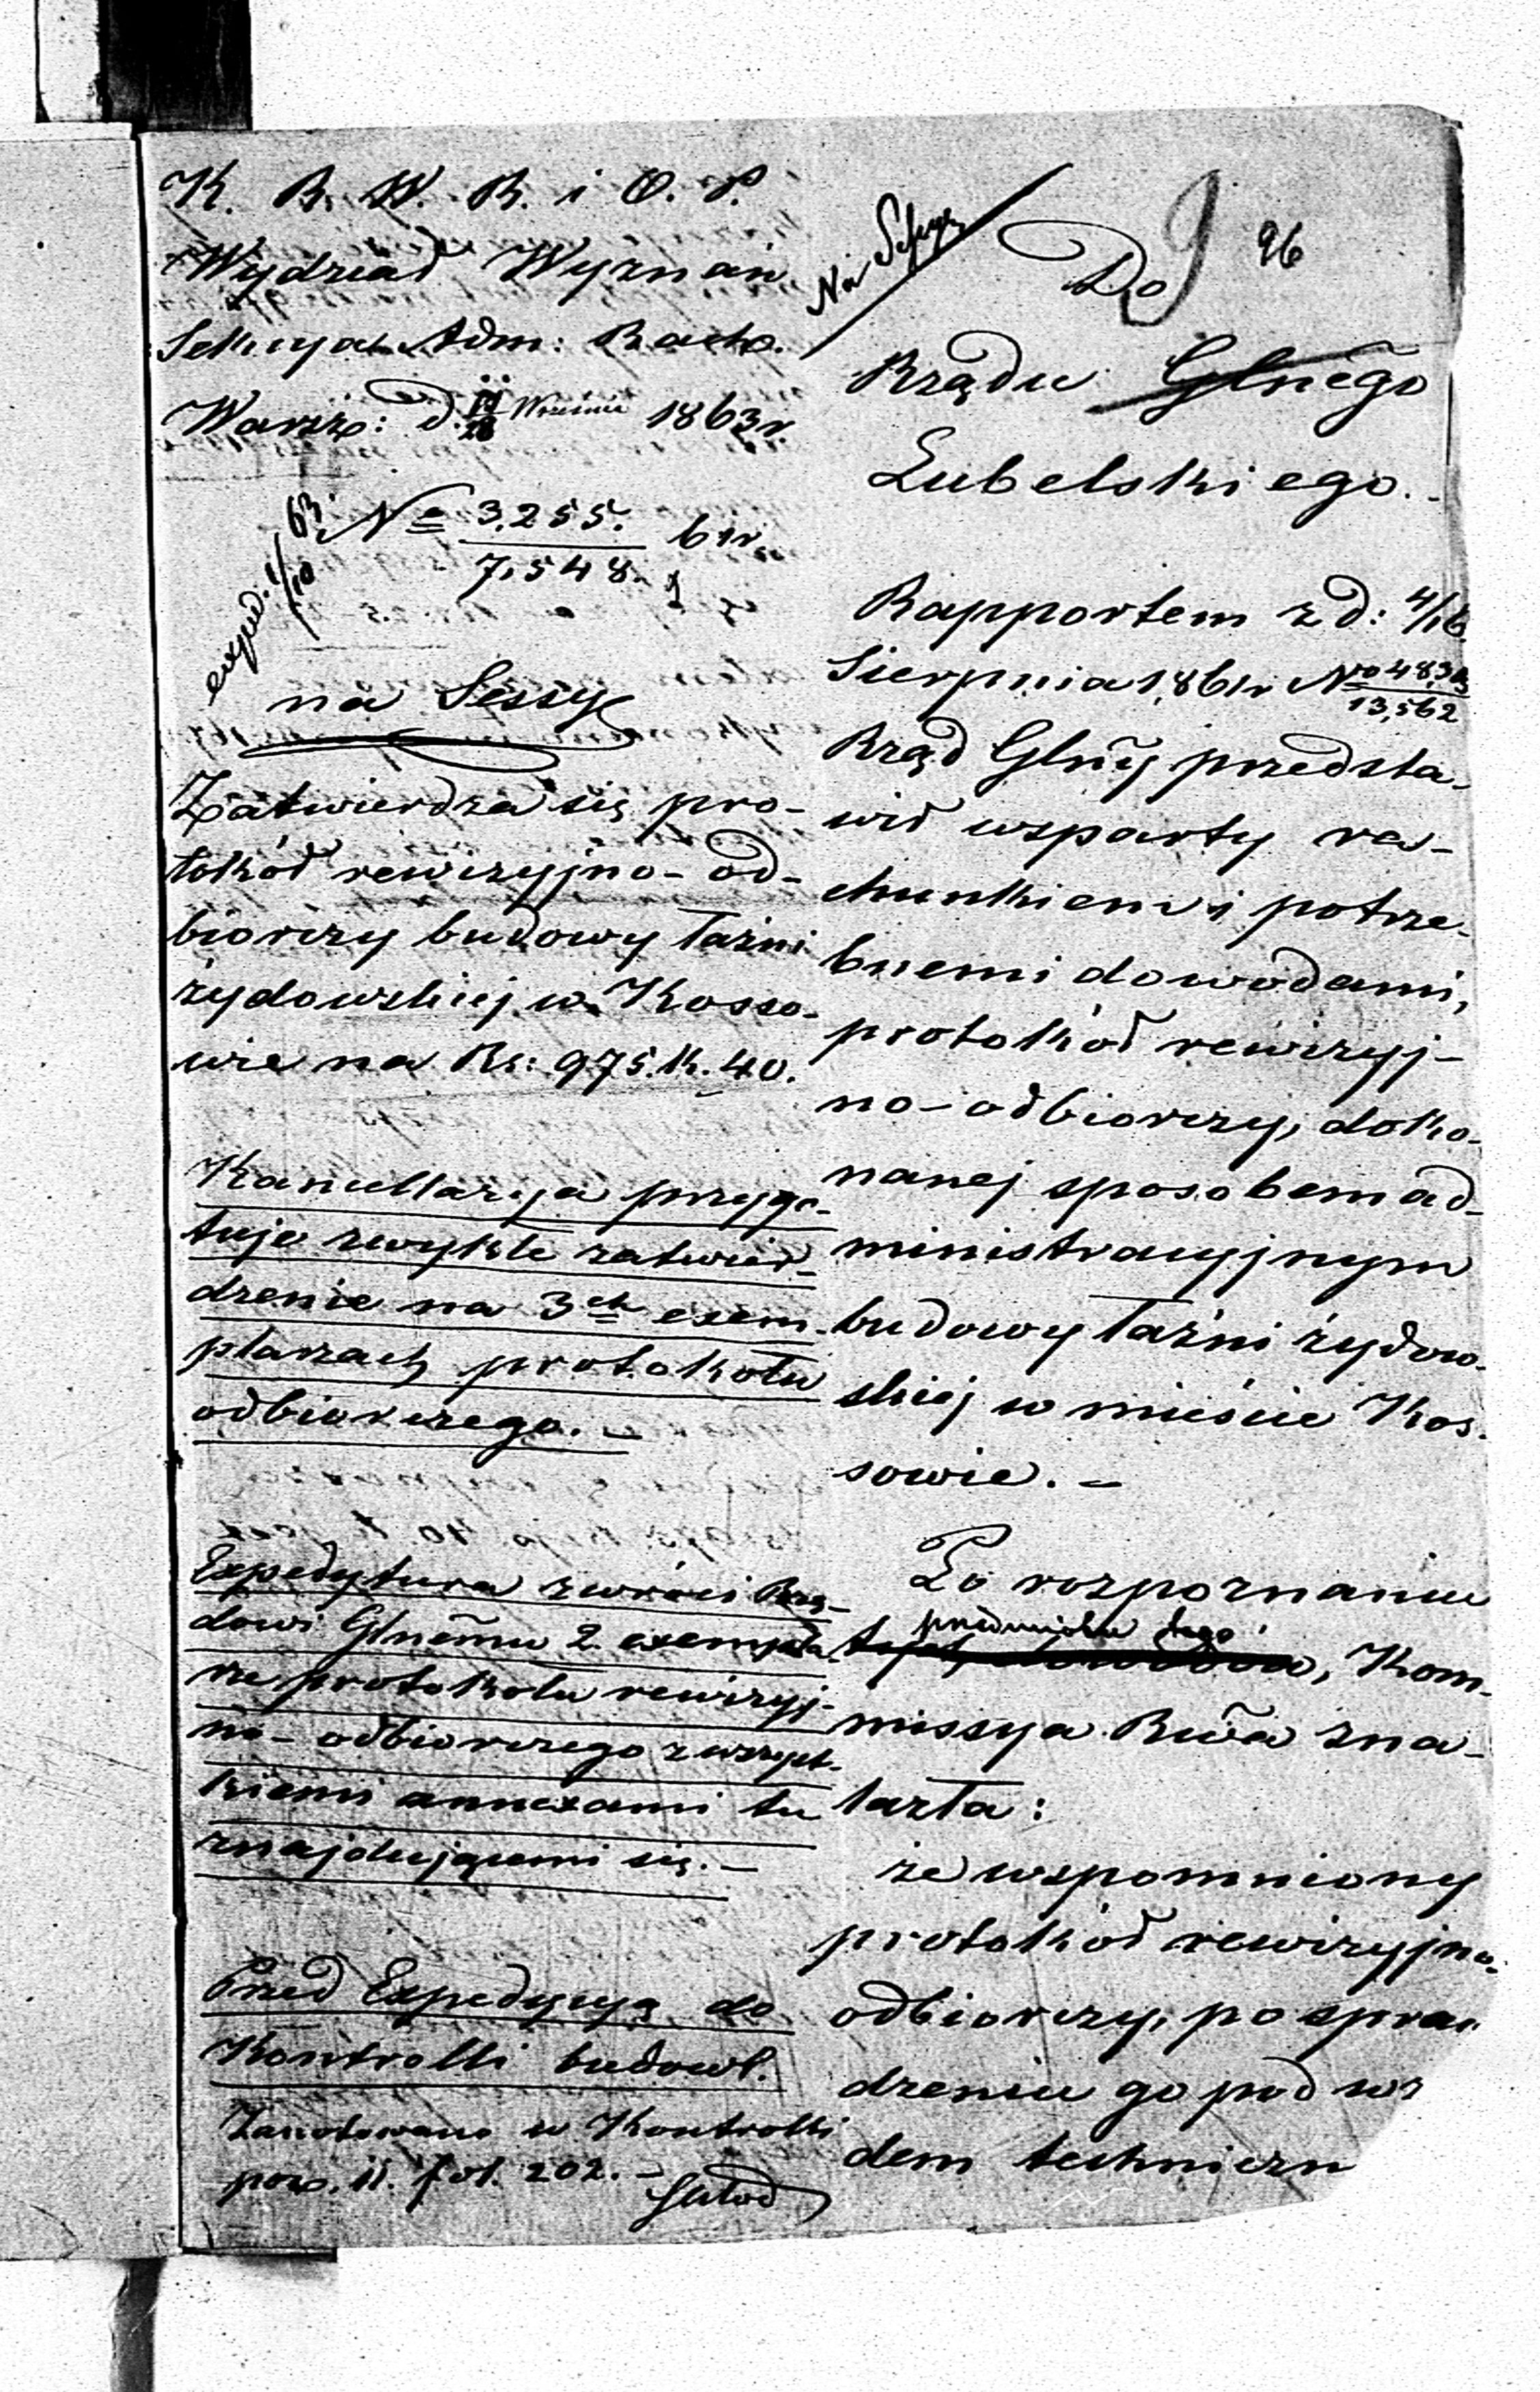 K. R. W. R. i O. P.
Wydział Wyznań
Sekcya Adm: Rach.
Warsz: d. Września 1863 r.
No 3,255. / 7,548. 61 r.
exped. 1/10 63.
na Sessyę
Zatwierdza się pro-
tokół rewizyjno-od-
biorczy budowy Łaźni
żydowskiej w Kosso-
wie na Rs: 975. k. 40.
Kancellarya przygo-
tuje zwykłe zatwier-
dzenie na 3ch exem-
plarzach protokołu
odbiorczego. —
Expedytura zwróci Rzą-
dowi Glnemu 2 exempla-
rze protokołu rewizyj-
no-odbiorczego z wszyst-
kiemi annexami tu
znajdującemi się. —
Przed Expedycyą do
Kontrolli budowl.
Zanotowano w Kontrolli
pow. II. fol. 202. —
Na Sessyę
Do 96
Rządu Glnego
Lubelskiego.
Rapportem z d: 4/16
Sierpnia 1861 r No 48,3 / 13,562
Rząd Glny przedsta-
wił wsparty ra-
chunkiem i potrze-
bnemi dowodami,
protokół rewizyj-
no-odbiorczy, doko-
nanej sposobem ad-
ministracyjnym
budowy Łaźni żydow-
skiej w mieście Kos-
sowie. —
Po rozpoznaniu
przedmiotu tego
, Kom-
missya Rwa zna-
lazła:
że wspomniony
protokół rewizyjno-
odbiorczy, po spraw
dzeniu go pod wz
dem techniczn